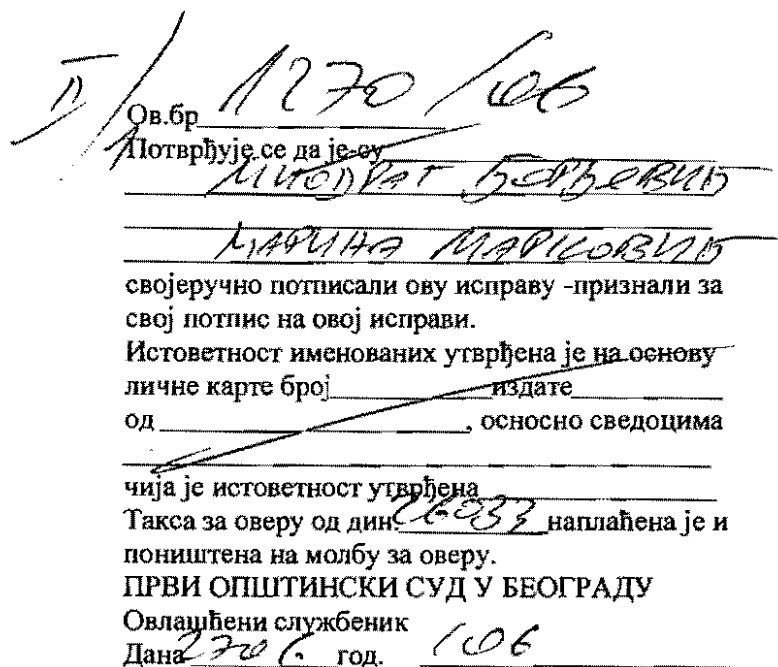 II/1
Ов.бр 1270/06
Потврђује се да је-су
МИОДРАГ ЂОРЂЕВИЋ
МАРИНА МАРКОВИЋ
својеручно потписали ову исправу -признали за
свој потпис на овој исправи.
Истоветност именованих утврђена је на основу
личне карте број издате
од , осносно сведоцима
чија је истоветност утврђена
Такса за оверу од дин. наплаћена је и
поништена на молбу за оверу.
ПРВИ ОПШТИНСКИ СУД У БЕОГРАДУ
Овлашћени службеник
Дана год. 106